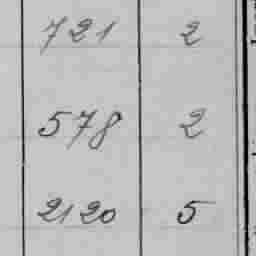 721 2
578 2
2120 5